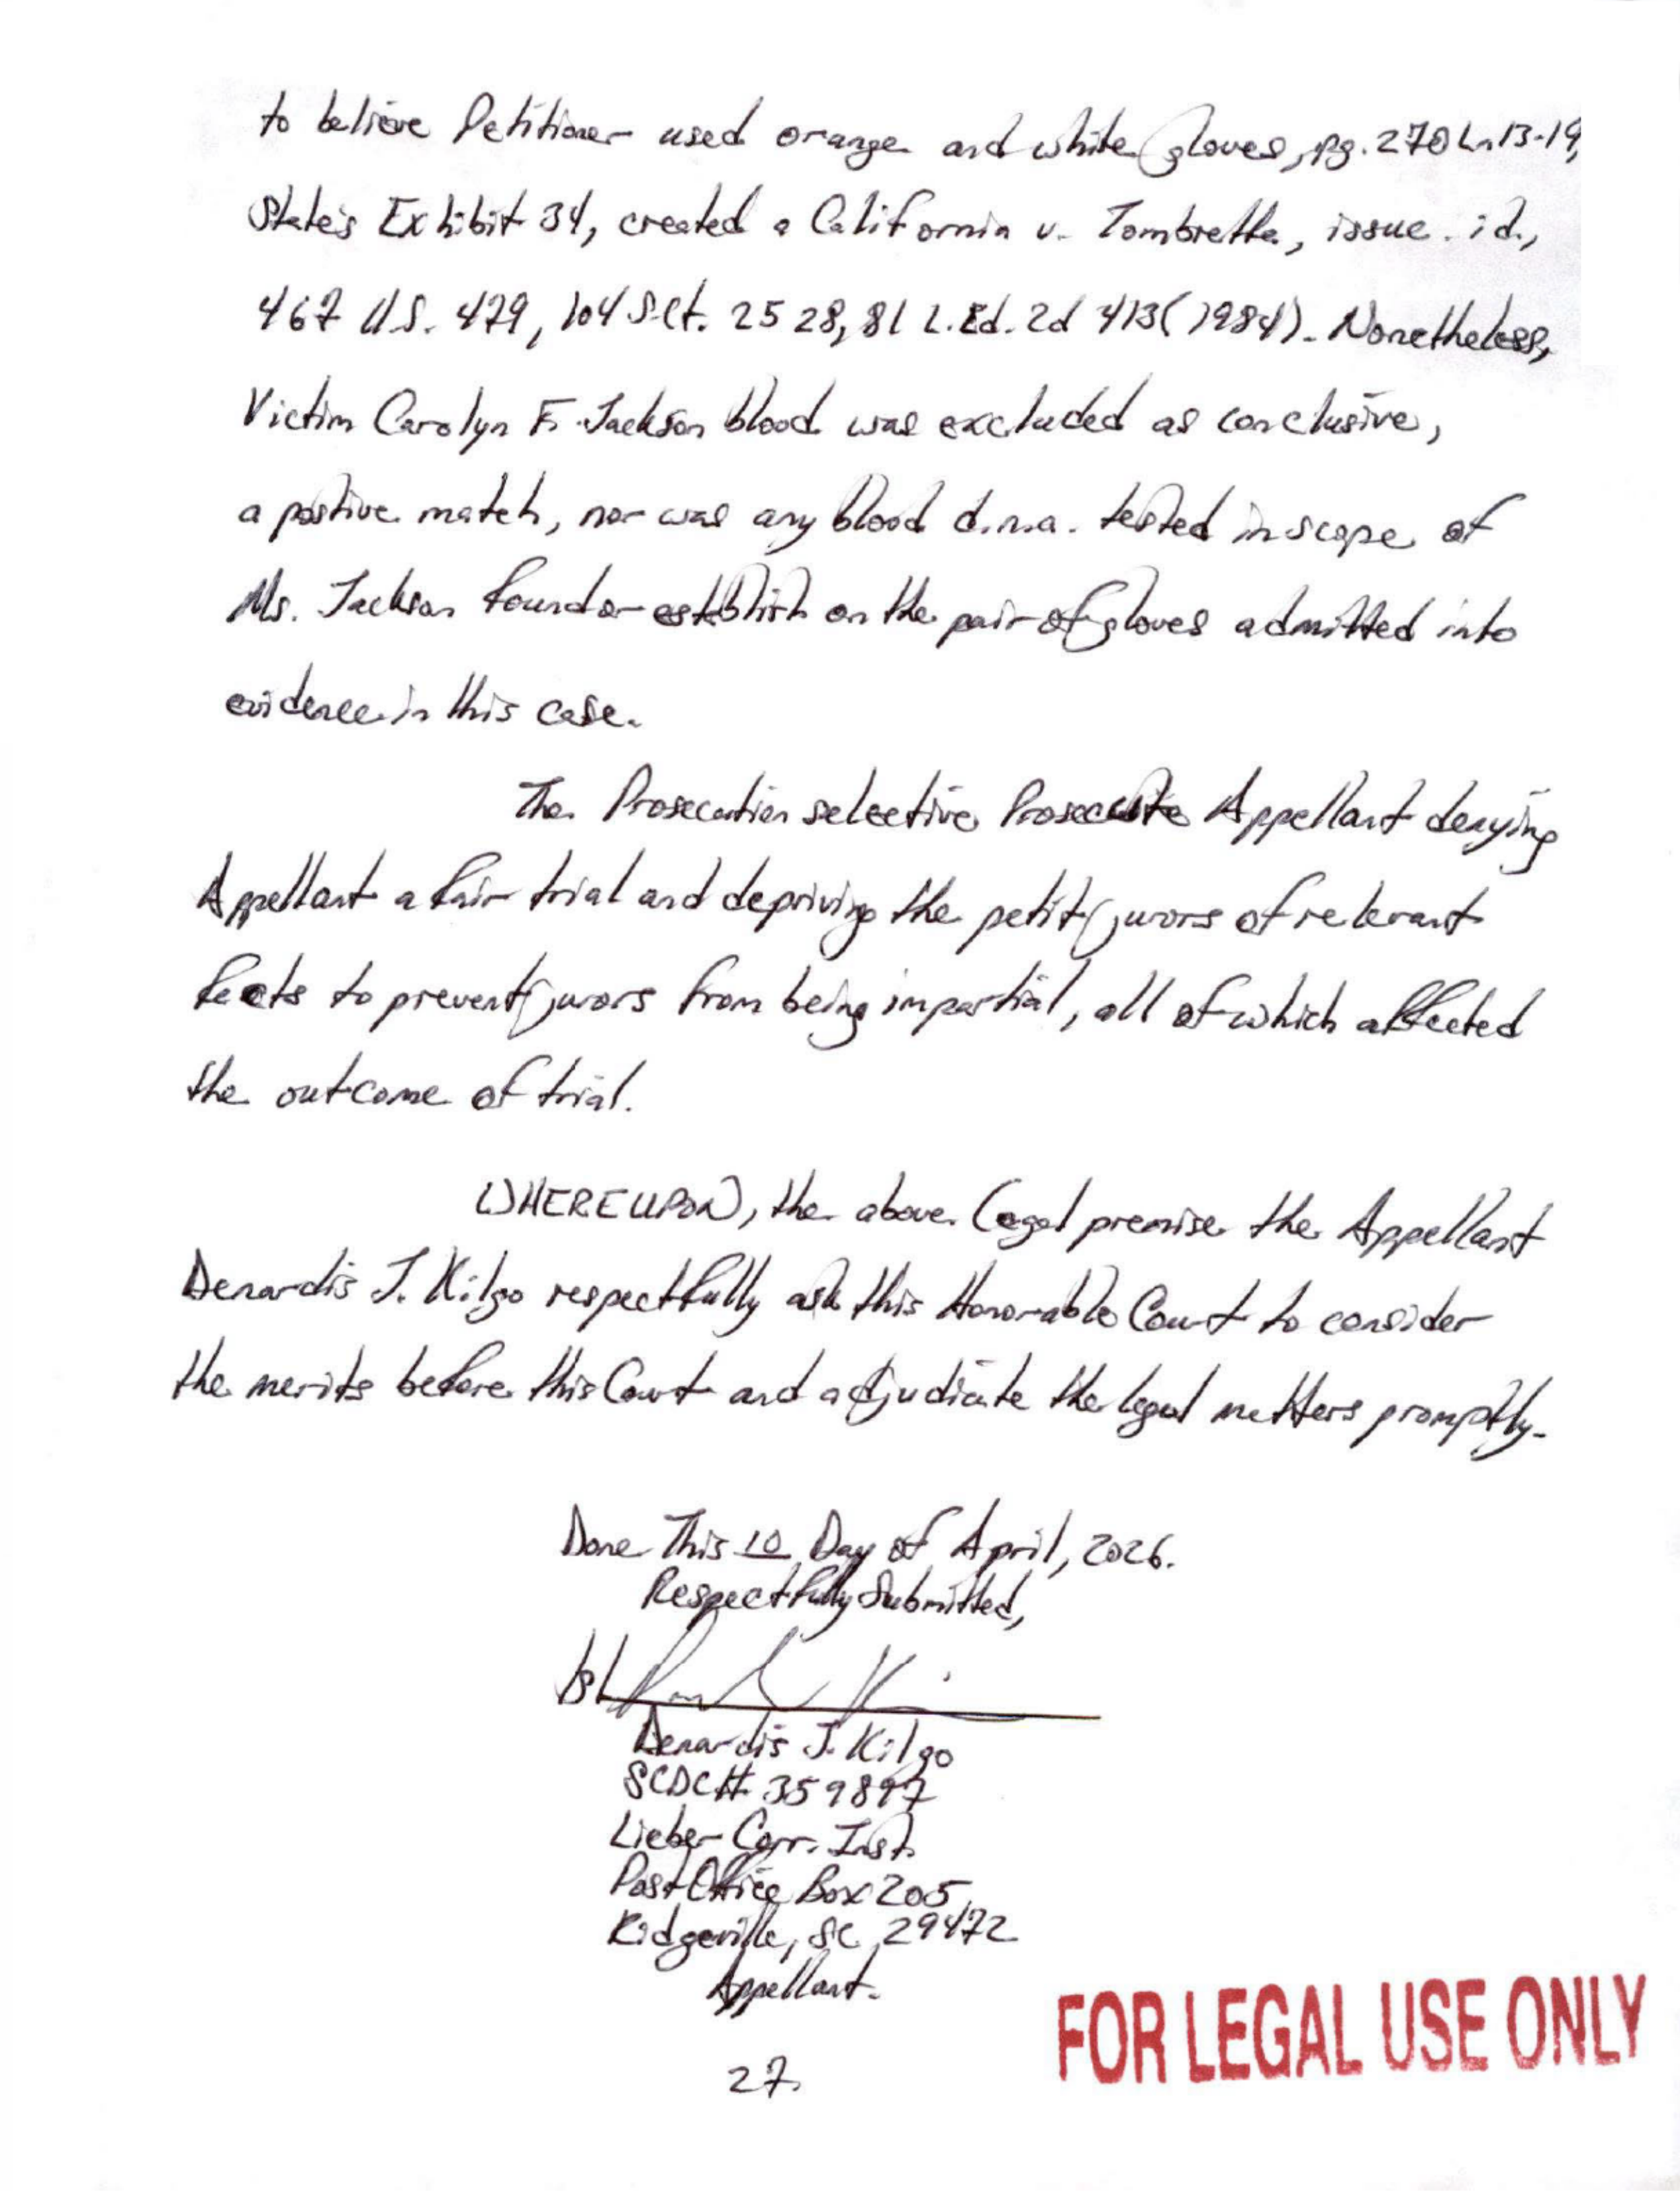 to believe Petitioner used orange and white gloves, pg. 270 Ln 13-19,
State's Exhibit 34, created a California v. Tombretta, issue. id.,
467 U.S. 479, 104 S.Ct. 2528, 81 L.Ed. 2d 413 (1984). Nonetheless,
Victim Carolyn F. Jackson blood was excluded as conclusive,
a postive match, nor was any blood d.n.a. tested in scope of
Ms. Jackson found or establish on the pair of gloves admitted into
evidence in this case.
The Prosecution selective Prosecute Appellant denying
Appellant a fair trial and depriving the petit jurors of relevant
facts to prevent jurors from being impartial, all of which affected
the outcome of trial.
WHEREUPON, the above legal premise the Appellant
Denardis J. Kilgo respectfully ask this Honorable Court to consider
the merits before this Court and adjudicate the legal matters promptly.
Done This 10 Day of April, 2026.
Respectfully Submitted,
/s/
Denardis J. Kilgo
SCDC# 359897
Lieber Corr. Inst.
Post Office Box 205
Ridgeville, SC 29472
Appellant.
27.
FOR LEGAL USE ONLY